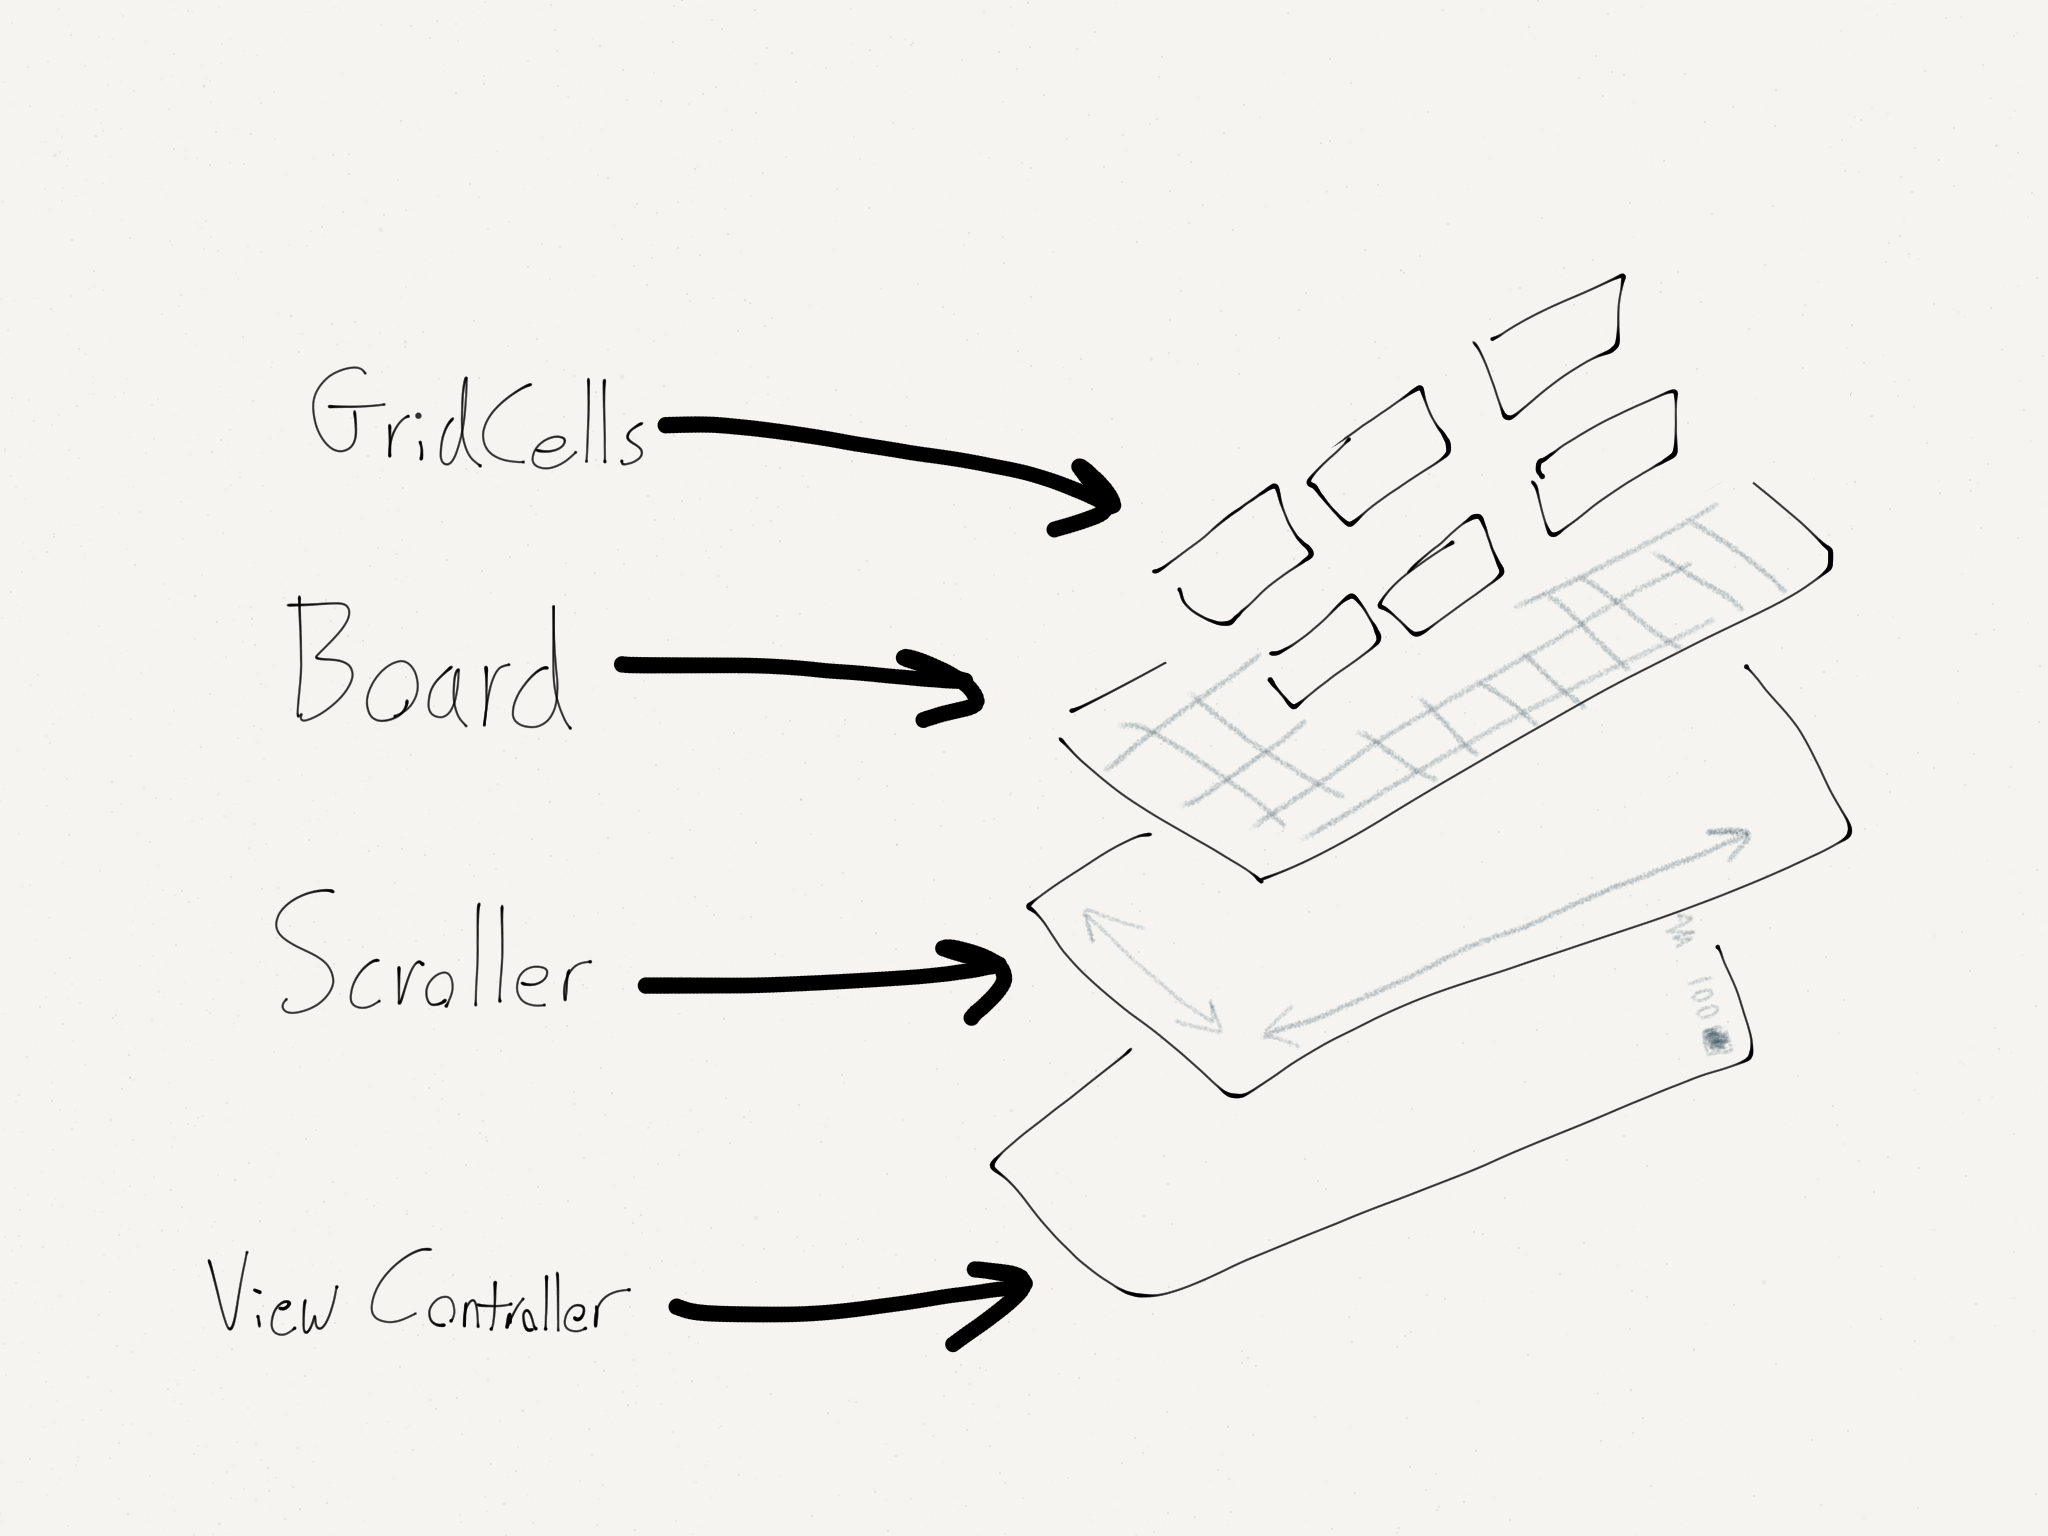 GridCells
Board
Scroller
100
View Controller